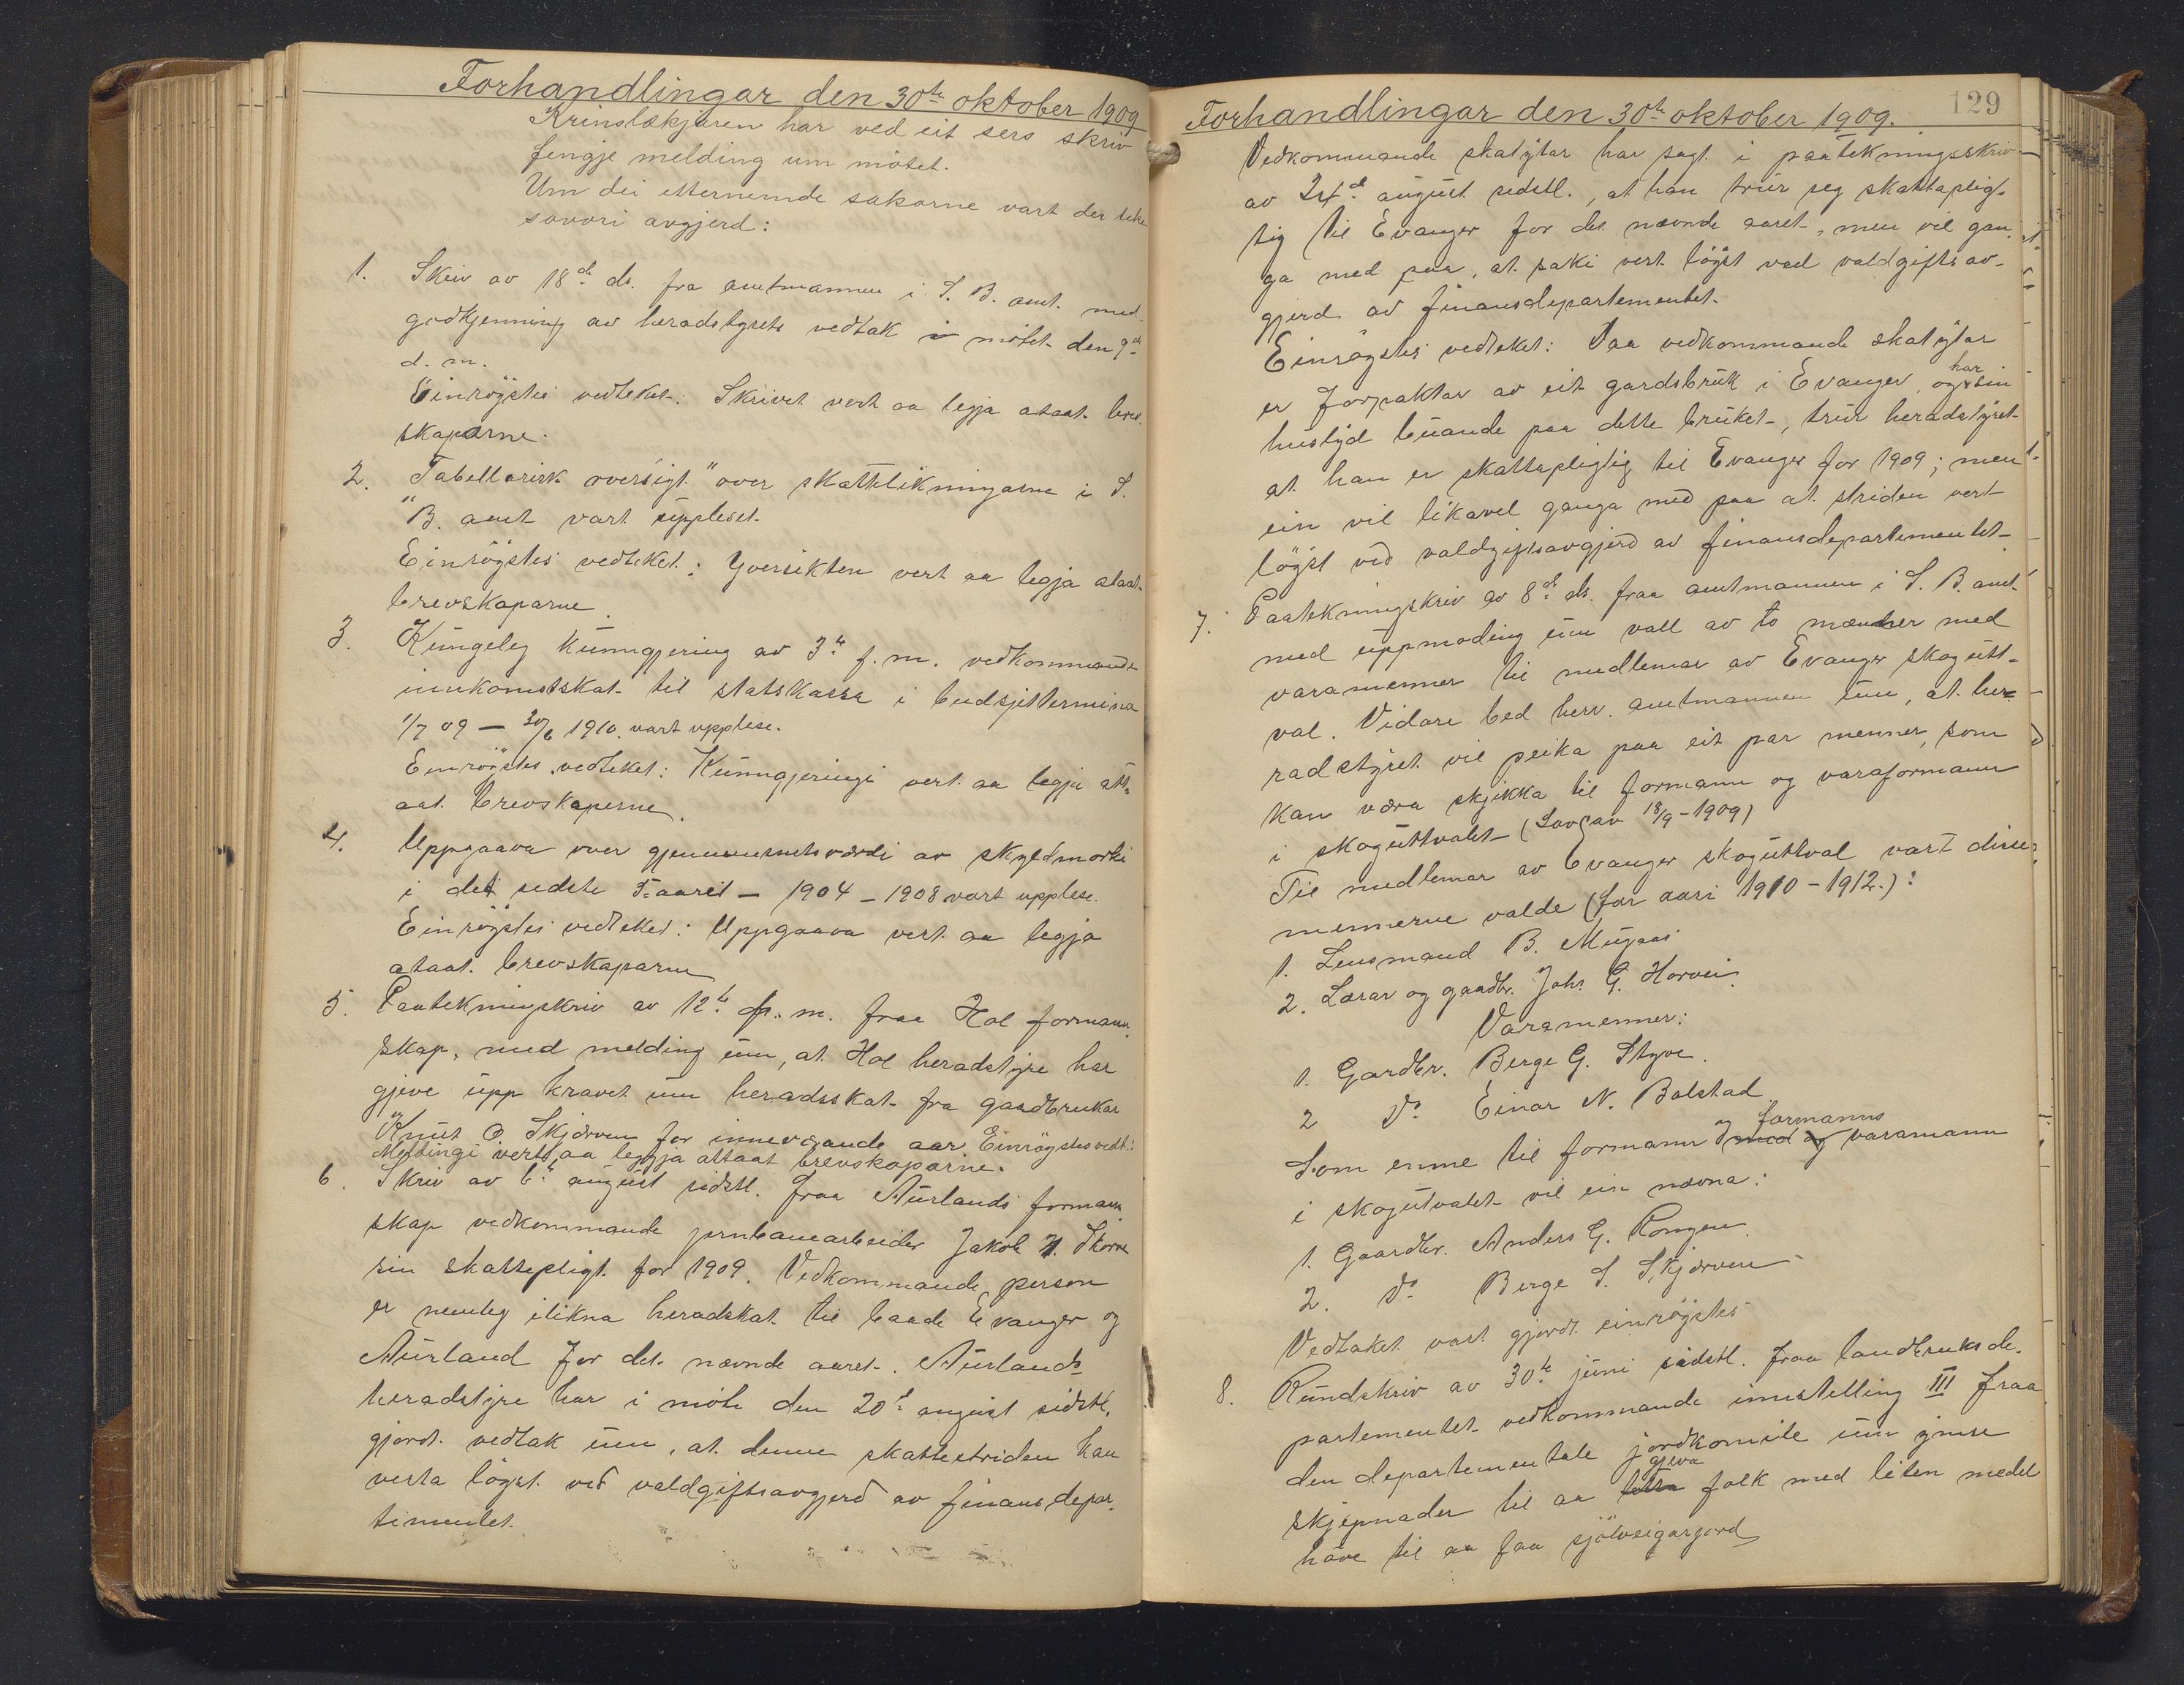 Forhandlingar den 30te oktober 1909
Krinslækjaren har ved eit sers skriv
fengje melding um mötet.
Um dei etternemde sakarne vart der teke
sovori avgjerd:
1. Skriv av 18de ds. fra amtmannen i S. B. amt. med
godkjenning av heradstyrets vedtak i mötet den 9de
d. m.
Einröystes vedteket: Skrivet vert aa legja ataat brev-
skaparne.
2. "Tabellarisk oversigt" over skattelikningarne i S.
B. amt vart uppleset.
Einröystes vedteket: Yversikten vert aa legja ataat
brevskaparne.
3. Kungeleg kunngjering av 3de f. m. vedkommande
innkomstskat til statskassa i budsjetterminen
1/7 09 – 30/6 1910. vart upplese.
Einröystes vedteket: Kunngjeringi vert aa legja att-
aat brevskaparne.
4. Uppgaava over gjennemsnitsværdi av skyldmarki
i det sedste 5-aaret – 1904 – 1908 vart upplese.
Einröystes vedteket: Uppgaava vert aa legja
ataat brevskaparne
5. Paatekningskriv av 12te f. m. fraa Hol formann-
skap, med melding um, at Hol heradstyre har
gjeve upp kravet um heradsskat fra gaardbrukar
Knut O. Skjerven for inneverande aar. Einröystes vedt.:
Meldingi verts aa leggja attaat brevskaparne.
6. Skriv av 6te august sidstl. fraa Aurlands formann-
skap vedkommande jernbanearbeider Jakob
sin skattepligt for 1909. Vedkommande person
er nemleg ilikna heradskat til baade Evanger og
Aurland for det nævnde aaret. Aurlands
heradstyre har i möte den 20de august sidstl.
gjordt vedtak um, at denne skattestriden kan
verta löyst ved valdgiftsavgjerd av finansdepar-
timentet.
Forhandlingar den 30te oktober 1909. 129
Vedkommande skatytar har sagt i paatekningsskriv
av 24de august sidstl., at han trur seg skattaplig-
tig til Evanger for det nævnde aaret, men vil gan-
ga med paa, at saki vert löyst ved valdgiftsav-
gjerd av finansdepartementet.
Einröystes vedteket: Daa vedkommande skatytar
er forpaktar av eit gardsbruk i Evanger, og har sin
huslyd buande paa dette bruket, trur heradstyret
at han er skattepligtig til Evanger for 1909; men
ein vil likavel ganga med paa at striden vert
löyst ved valdgiftsavgjerd av finansdepartementet.
7. Paatekningskriv av 8de ds. fraa amtmannen i S. B. amt
med uppmoding um vall av to menner med
varamenner til medlemar av Evanger skogutt-
val. Vidare bed herr amtmannen um, at he-
radstyret vil peika paa eit par menner, som
kan væra skjikka til formann og varaformann
i skoguttvalet (Lov av 18/9 – 1909)
Til medlemar av Evanger skoguttval vart disse
mennerne valde (for aari 1910 – 1912.):
1. Lensmand B. Mugaas
2. Lærar og gaardbr. Johs G. Horvei.
Varamenner:
1. Gardbr. Berge G. Styve.
2 Do Einar N. Bolstad
Som emne til formann og formanns varamann
i skogutvalet vil ein nævna:
1. Gaardbr. Anders G. Rongen.
2. Do Berge S. Skjerven
Vedtaket vart gjordt einröystes
8. Rundskriv av 30te juni sidstl. fraa landbruksde-
partementet vedkommande innstelling III fraa
den departementale jordkomite um ymse
skjepnader til aa gjeva folk med liten medel
höve til aa faa sjölveigarjord